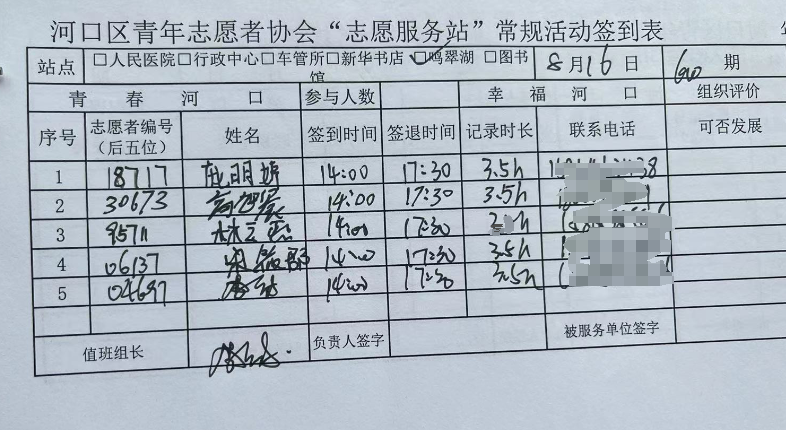 河口区青年志愿者协会“志愿服务站”常规活动签到表
站点 □人民医院□行政中心□车管所□新华书店 ☑鸣翠湖 □图书馆 8月16日 600 期
青春河口 参与人数 幸福河口 组织评价
序号 志愿者编号（后五位） 姓名 签到时间 签退时间 记录时长 联系电话 可否发展
1 18717 14:00 17:30 3.5h
2 30673 14:00 17:30 3.5h
3 95711 14:00 17:30
4 06137 14:00 17:30 3.5h
5 04697 14:00 17:30 3.5h
值班组长 负责人签字 被服务单位签字